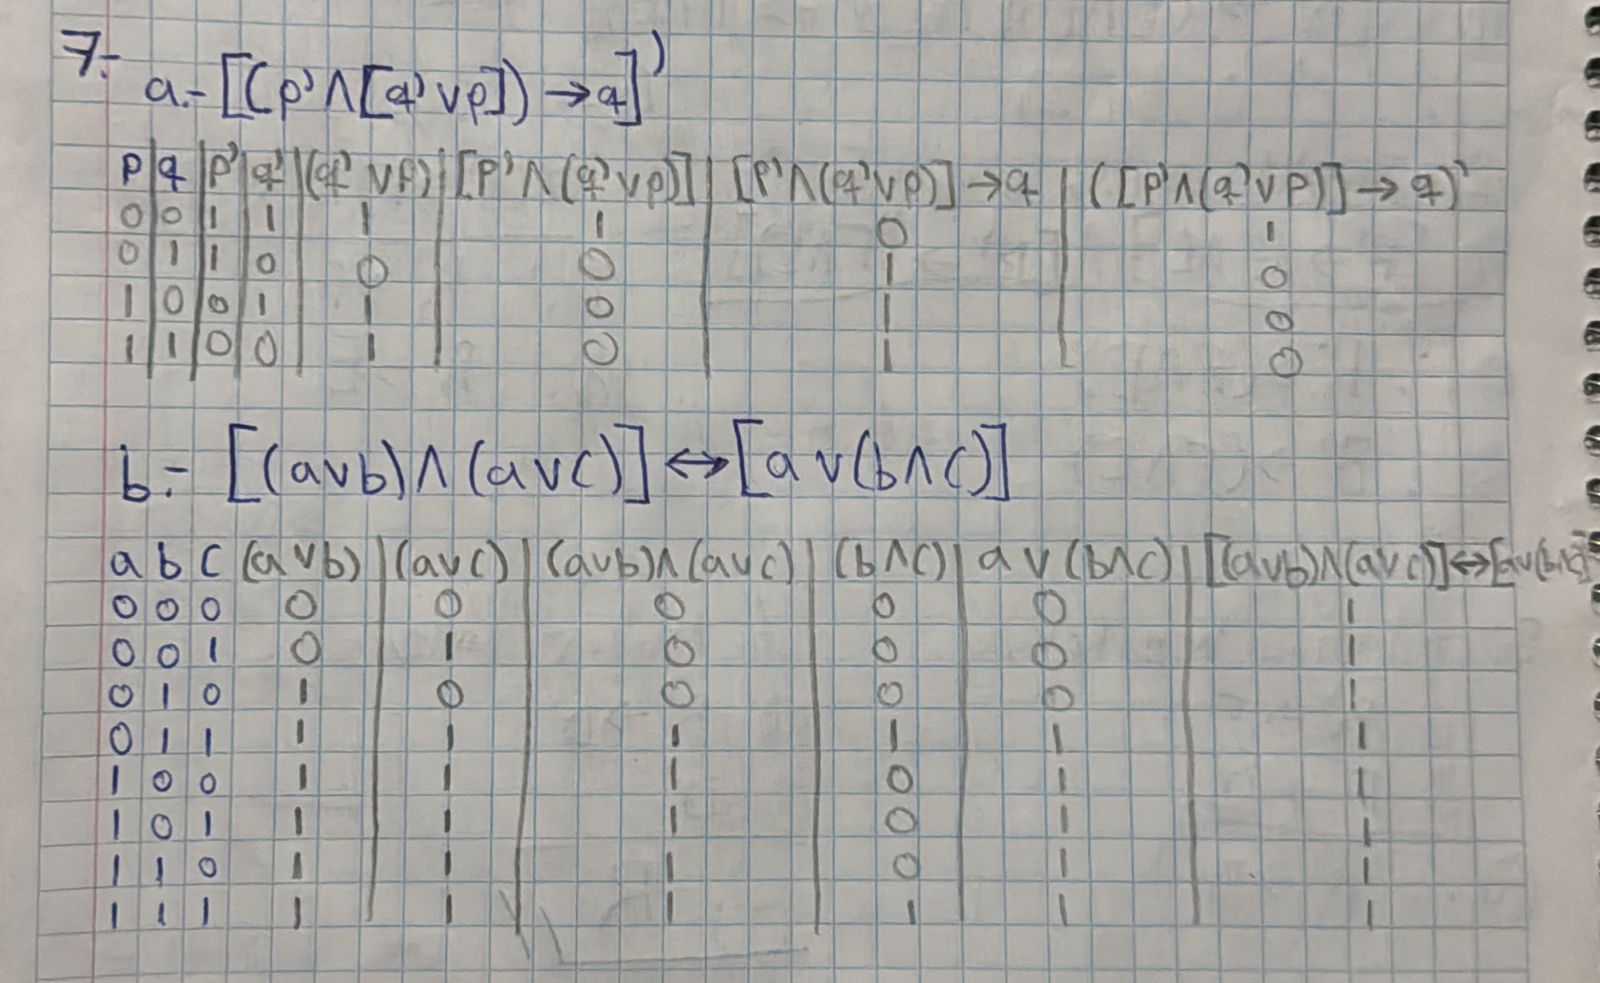 7.-
a.- [(p'∧[q'∨p])→q]'
p q p' q' (q'∨p) [p'∧(q'∨p)] [p'∧(q'∨p)]→q ([p'∧(q'∨p)]→q)'
0 0 1 1 1 1 0 1
0 1 1 0 0 0 1 0
1 0 0 1 1 0 1 0
1 1 0 0 1 0 1 0
b.- [(a∨b)∧(a∨c)]↔[a∨(b∧c)]
a b c (a∨b) (a∨c) (a∨b)∧(a∨c) (b∧c) a∨(b∧c) [(a∨b)∧(a∨c)]↔[a∨(b∧c)]
0 0 0 0 0 0 0 0 1
0 0 1 0 1 0 0 0 1
0 1 0 1 0 0 0 0 1
0 1 1 1 1 1 1 1 1
1 0 0 1 1 1 0 1 1
1 0 1 1 1 1 0 1 1
1 1 0 1 1 1 0 1 1
1 1 1 1 1 1 1 1 1